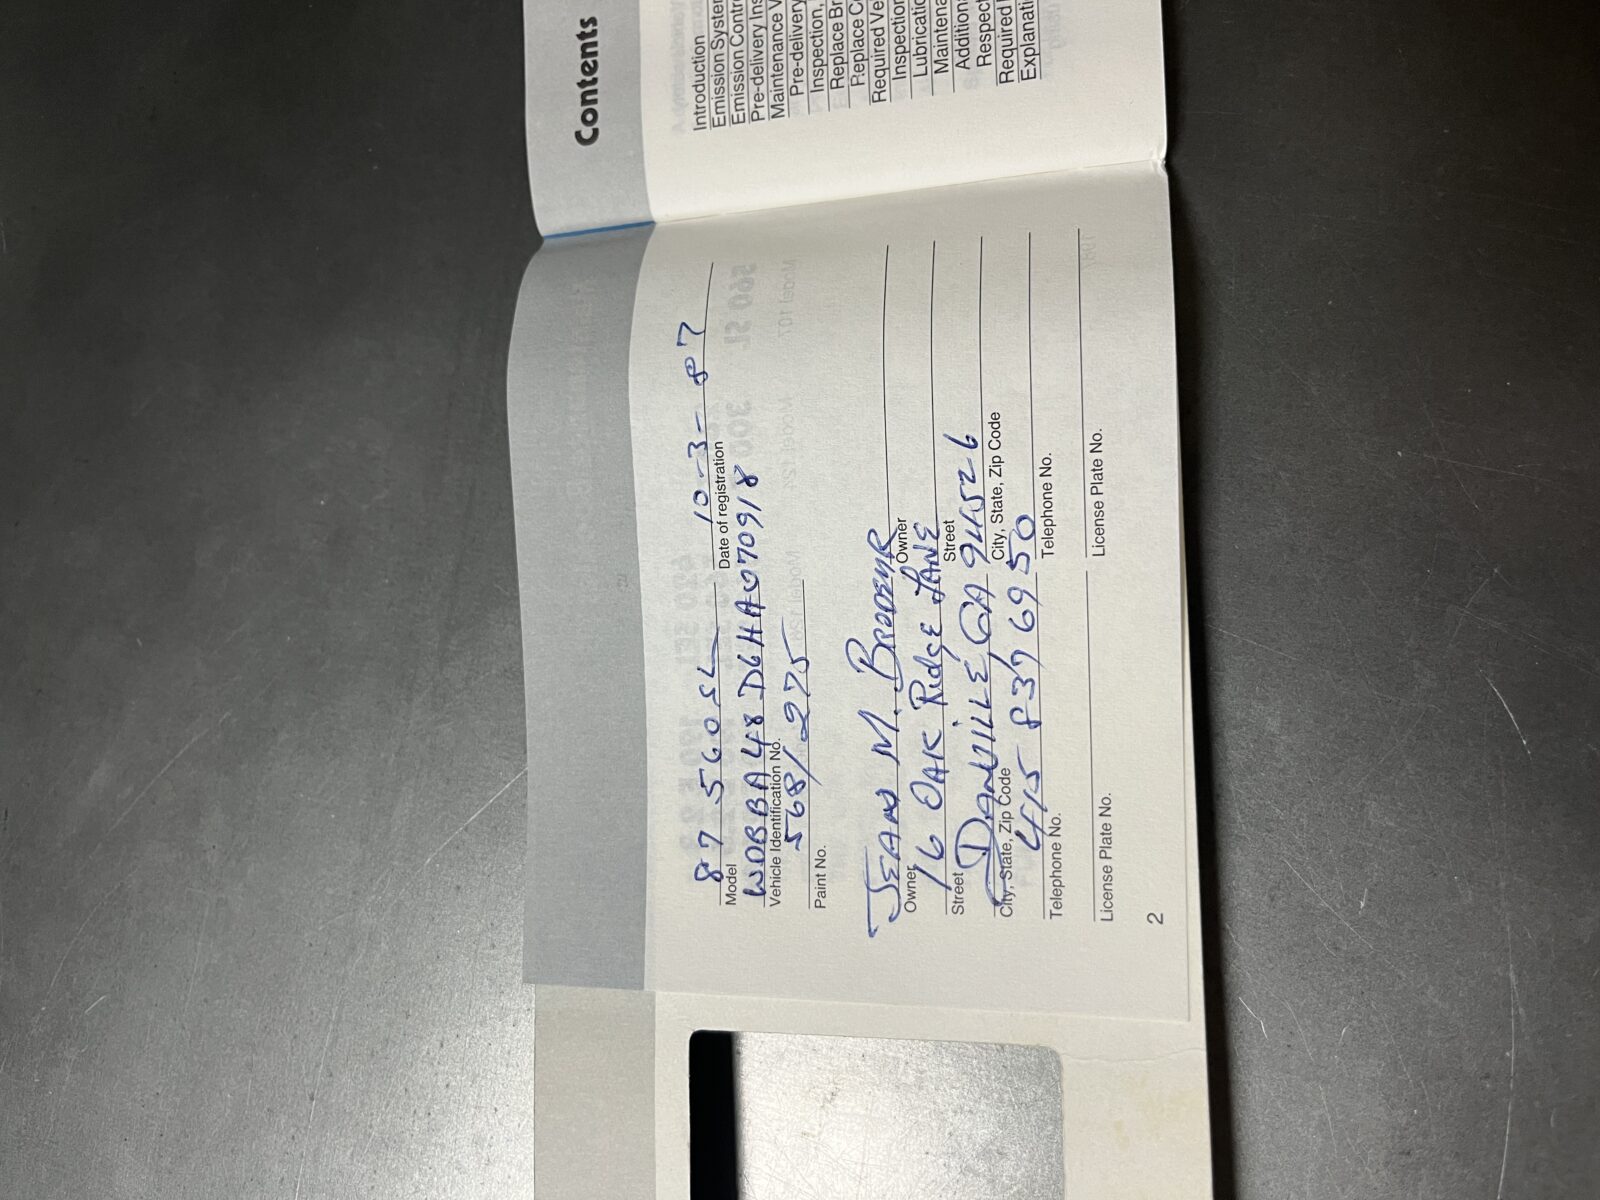 87 560SL 10-3-87
Model Date of registration
WDBBA48D6HA070918
Vehicle Identification No.
568/275
Paint No.
JEAN M.
Owner Owner
16 OAK RIDGE LANE
Street Street
DANVILLE, CA 94526
City, State, Zip Code City, State, Zip Code
415 837 6950
Telephone No. Telephone No.
License Plate No. License Plate No.
2
Contents
Introduction
Emission System
Emission Contro
Pre-delivery Ins
Maintenance V
Pre-delivery
Inspection,
Replace Br
Replace C
Required Ve
Inspection
Lubricatio
Maintena
Additiona
Respect
Required
Explanati